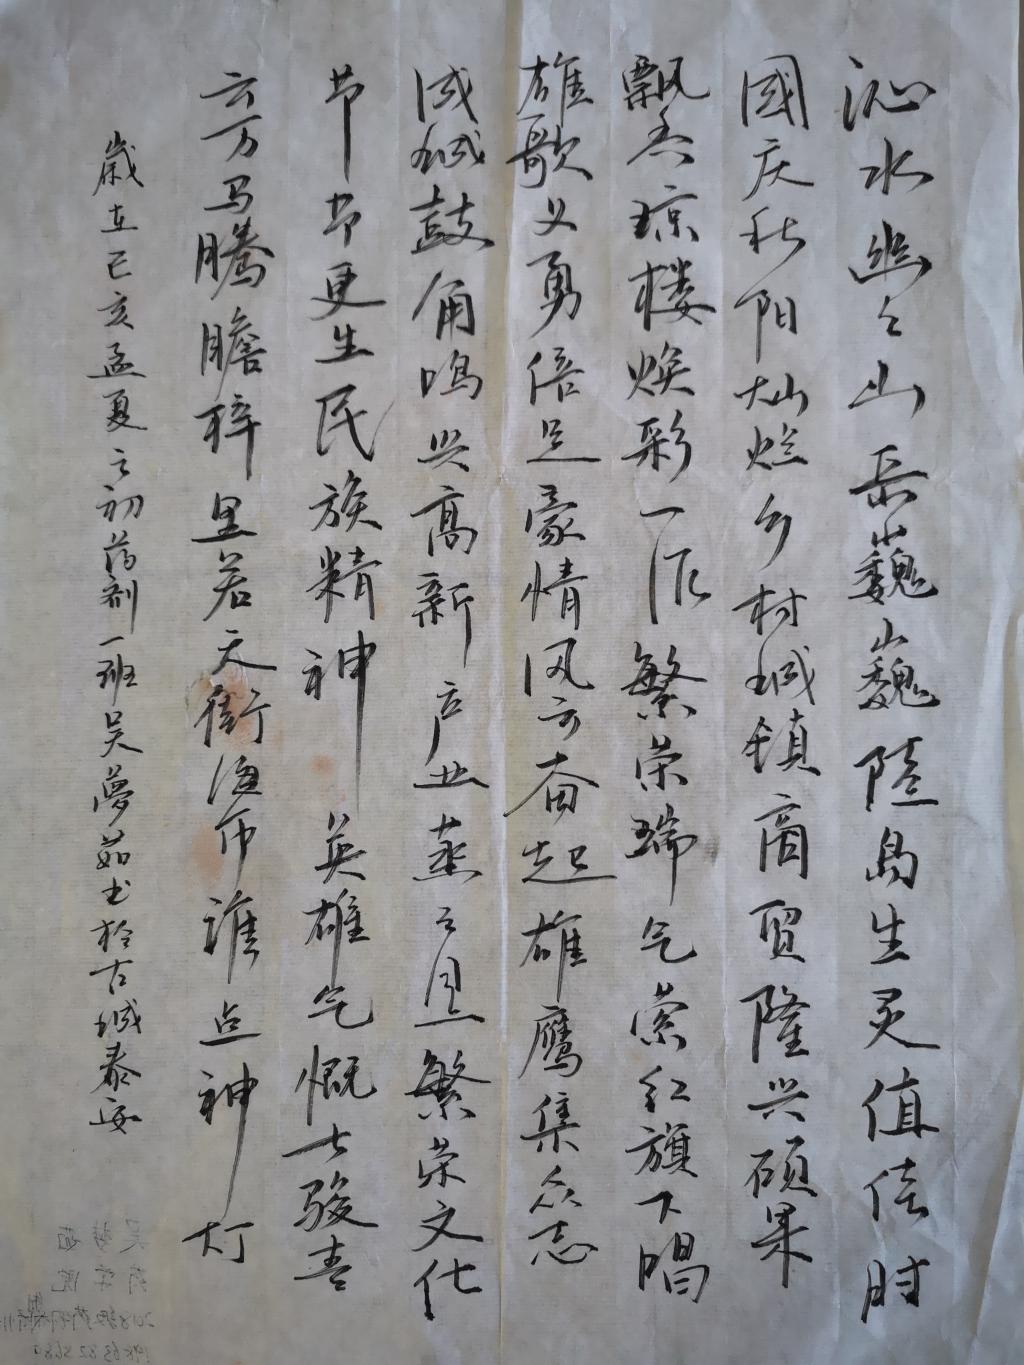 沁水幽々山岳巍巍陸岛生灵值佳时
國庆秋阳灿烂乡村城镇商贸隆兴硕果
飘香琼楼焕彩一派繁荣瑞气萦红旗下唱
雄歌义勇倍足豪情风云奋起雄鹰集众志
成城鼓角鸣兴高新产业蒸々日上繁荣文化
节节节更生民族精神英雄气慨七骏喜
云万马腾瞻梓里若天街酒市谁点神灯
歲在己亥孟夏之初药剂一班吴夢茹书於古城泰安